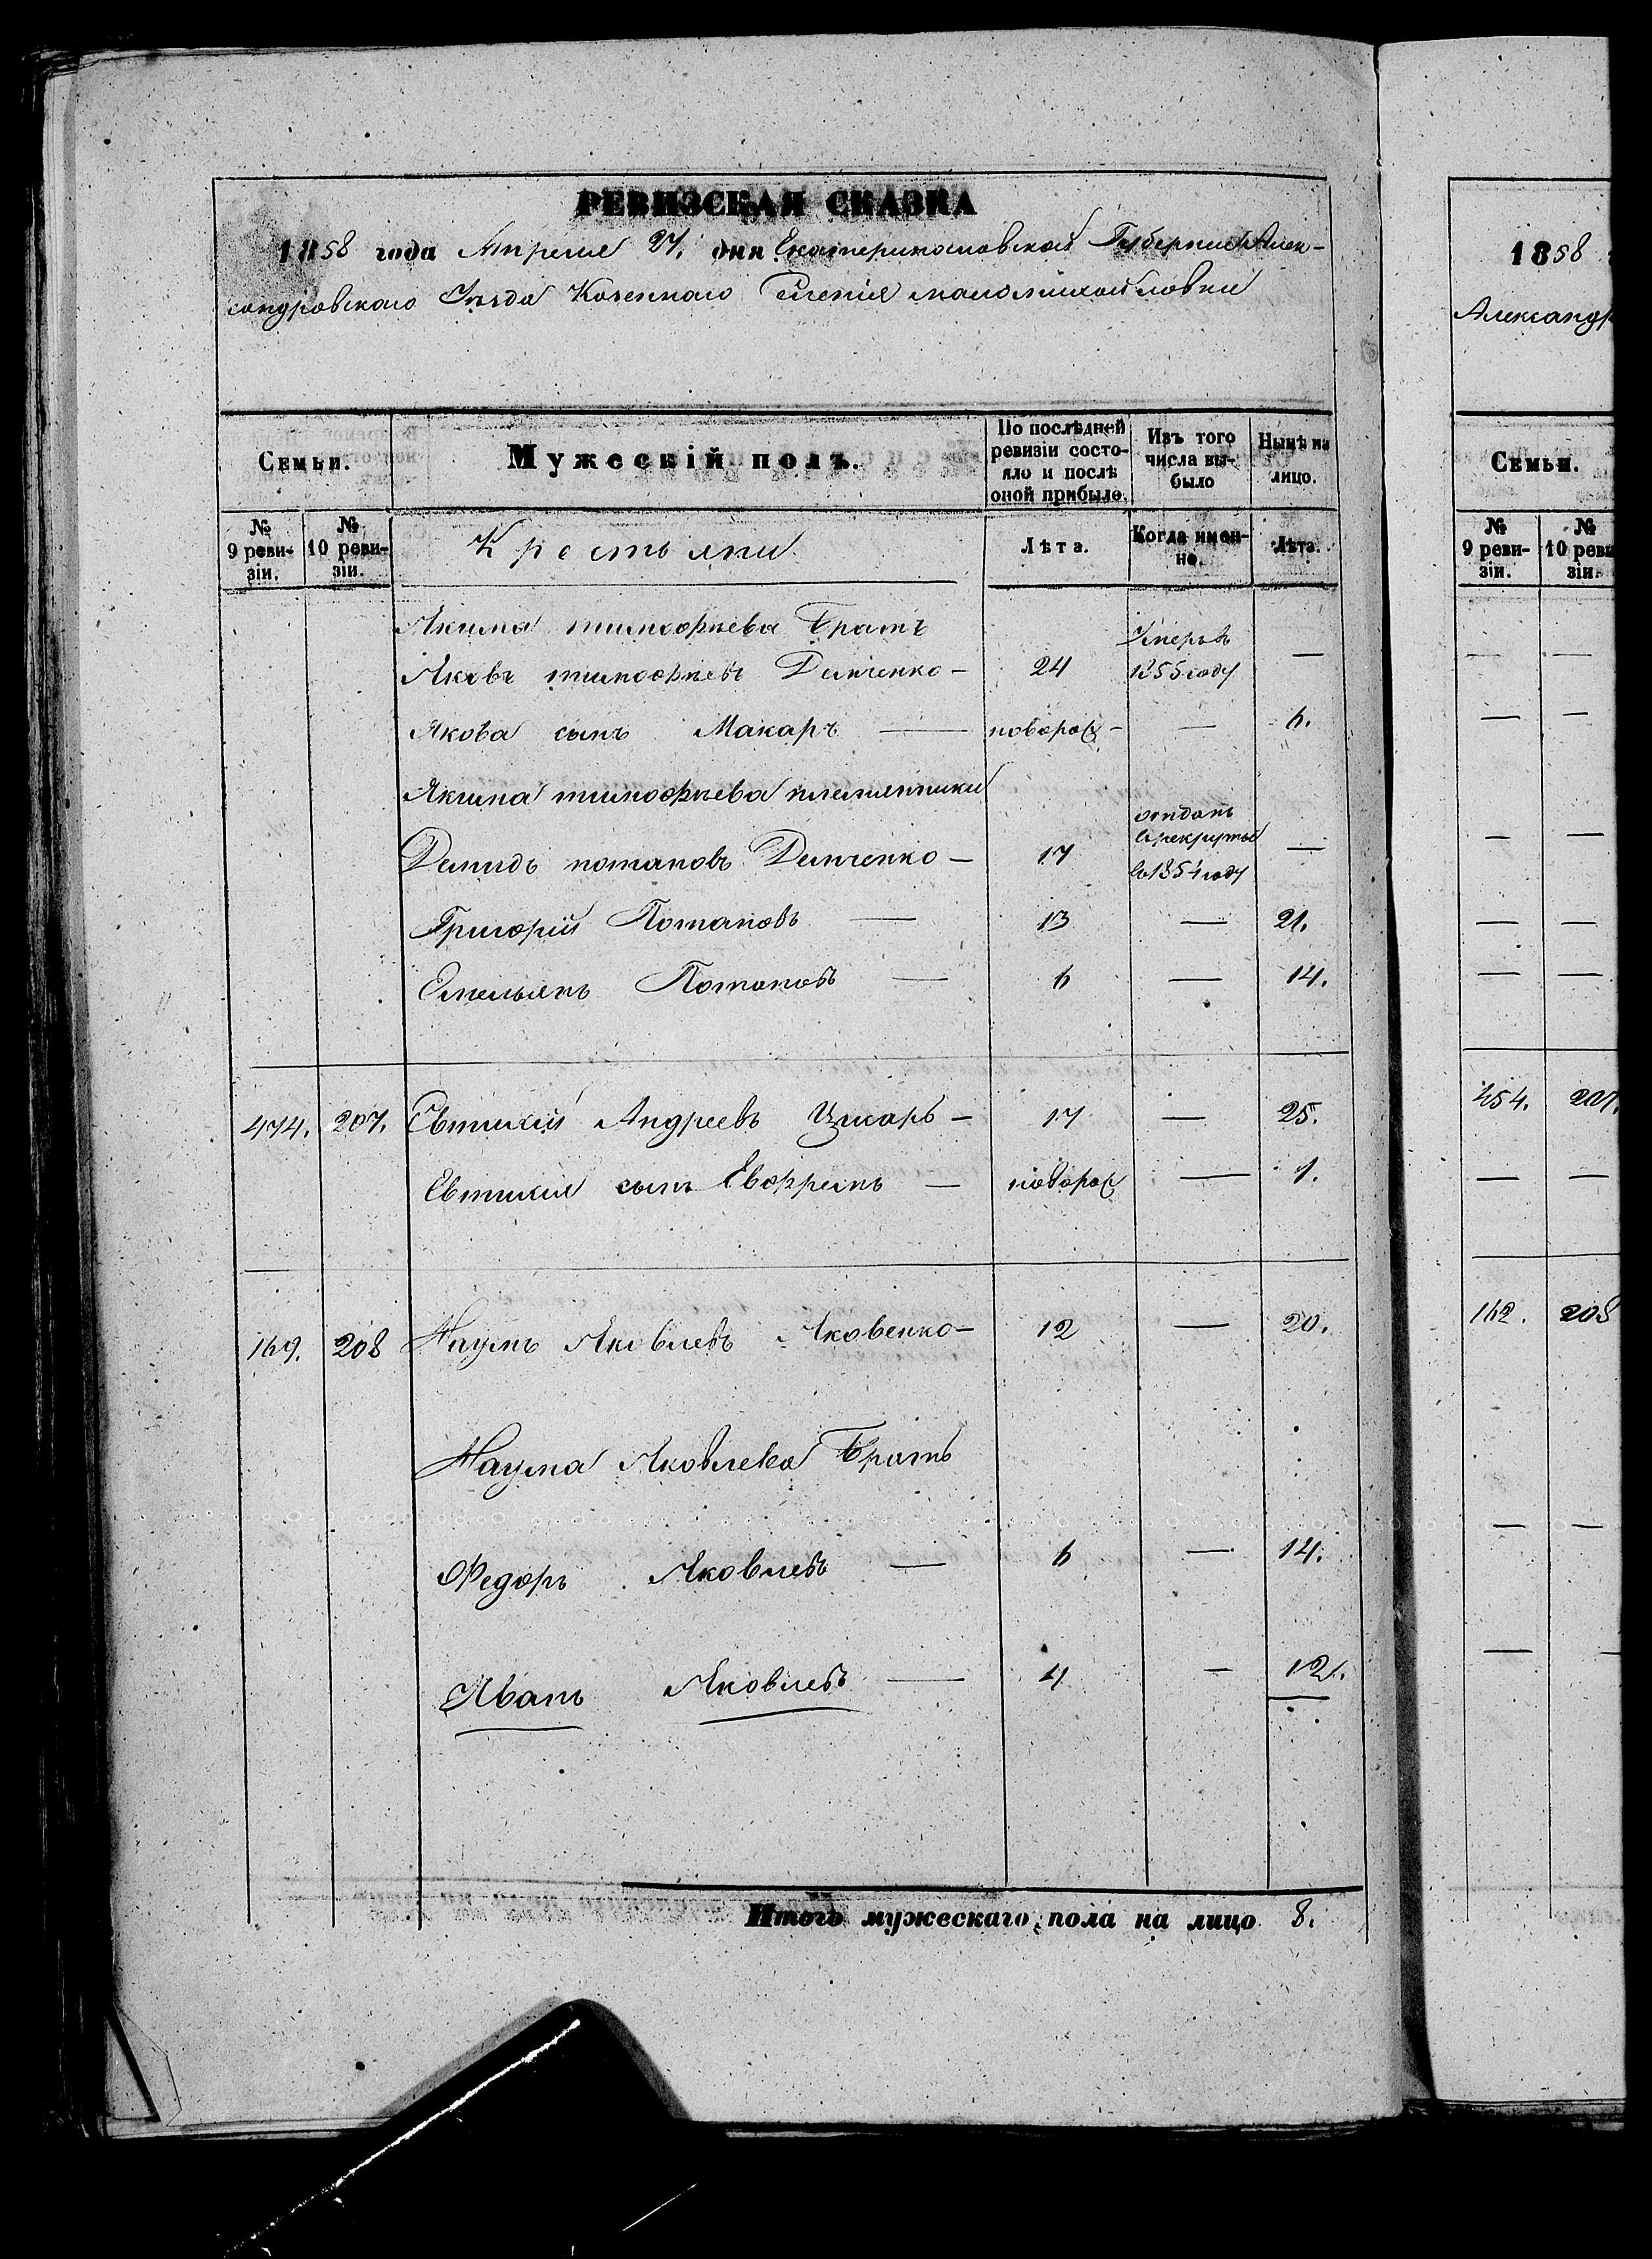 РЕВИЗСКАЯ СКАЗКА
1858 года Апреля 27. дня Екатеринославской Губернии Алек-
сандровскаго Уезда Казеннаго Селенія маломихайловки
Семьи.
Мужескій полъ.
По послѣдней ревизіи состо-яло и послѣ оной прибыло.
Изъ того числа вы-было
Нынѣ на лицо.
№ 9 реви-зіи.
№ 10 реви-зіи.
Крестьяни
Лѣта.
Когда имен-но.
Лѣта.
Якима тимофѣева Братъ
Яковъ тимофѣевъ Демченко — 24 Умеръ въ 1855 году —
Якова сынъ Макаръ — новорож — — 6.
Якима тимофѣева племянники
Демидъ потаповъ Демченко — 17 отданъ в рекруты в 1854 году —
Григорій Потаповъ — 13 — 21.
Емельянъ Потаповъ — 6 — 14.
474. 207. Евтихій Андреевъ Цмарь — 17 — 25.
Евтихія сынъ Евфремъ — новорож — 1.
169. 208 Наумъ Яковлевъ Яковенко — 12 — 20.
Наума Яковлева Братъ
Федоръ Яковлевъ — 6 — 14.
Иванъ Яковлевъ — 4 — 12.
Итогъ мужескаго пола на лицо 8.
1858
Александр
Семьи.
№ 9 реви-зіи.
№ 10 реви
зіи.
— —
— —
— —
— —
— —
454. 207.
— —
162. 208
— —
— —